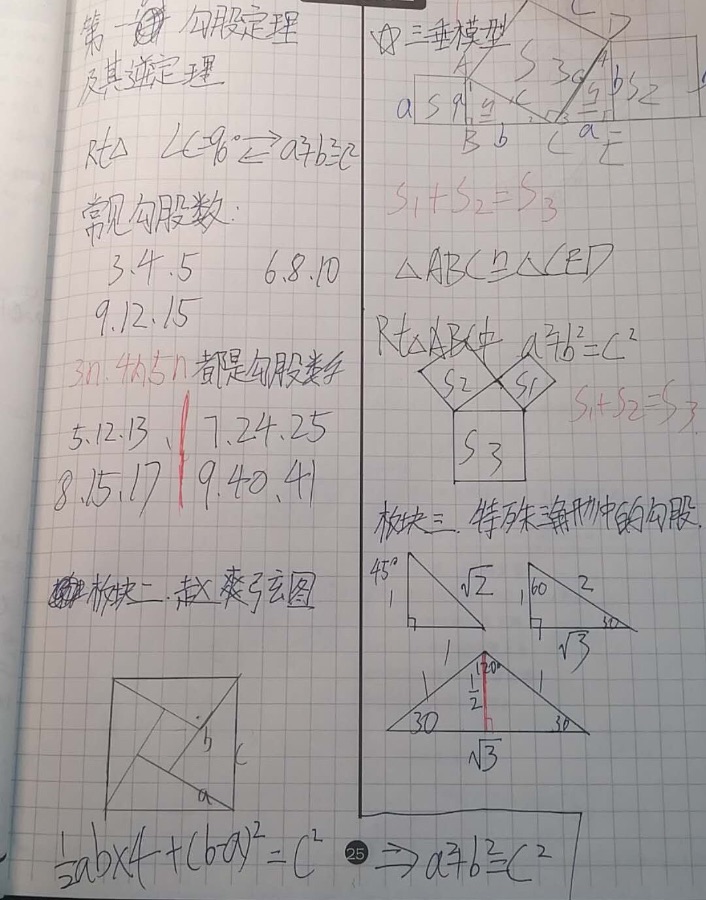 第一 勾股定理
及其逆定理
Rt△ ∠C=90° ⇄ a²+b²=c²
常见勾股数:
3.4.5 6.8.10
9.12.15
3n.4n.5n 都是勾股数
5.12.13、 7.24.25
8.15.17 9.40.41
板块二.赵爽弦图
b
c
a
½ab×4+(b-a)²=c² ⇒ a²+b²=c²
25
☆三垂模型
C D
A S3 c A
a S1 a c b S2
B b C a E
S1+S2=S3
△ABC≌△CED
Rt△ABC中 a²+b²=c²
S2 S1
S1+S2=S3
S3
板块三.特殊三角形中的勾股
45° √2 60 2
1 1 30
1 √3
1 120° 1
½
30 30
√3